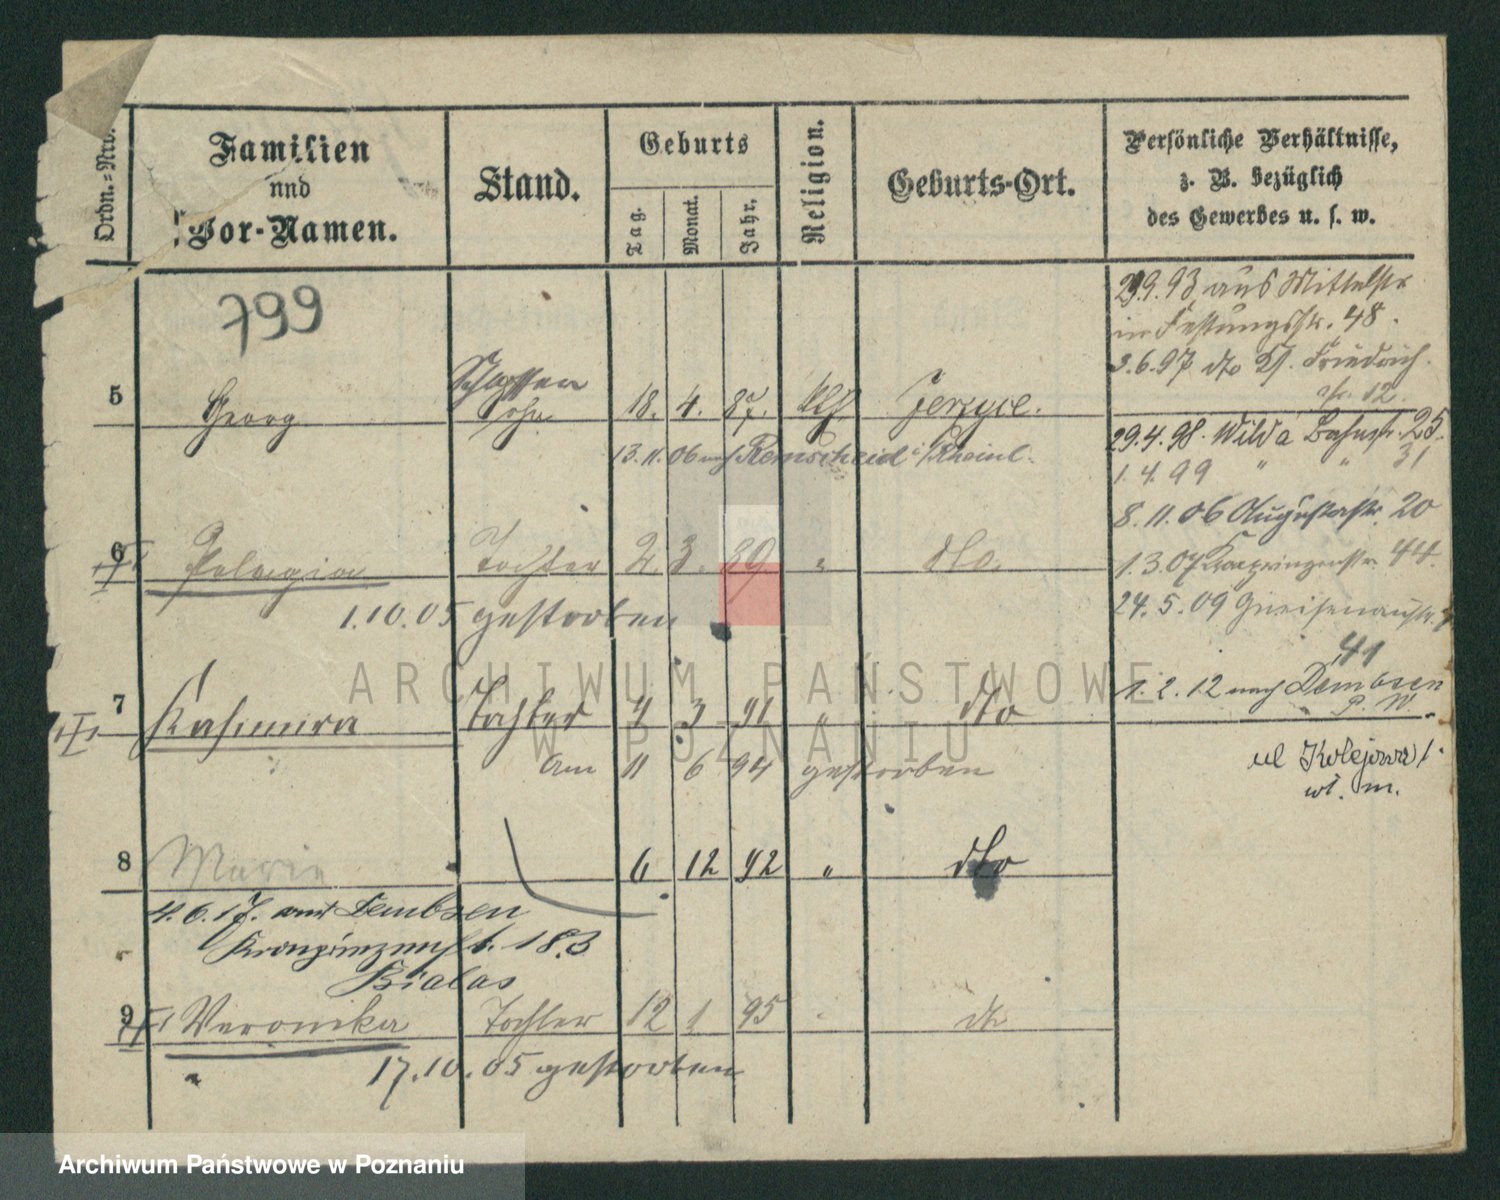 Ordn.=Nro.
Familien
und
Vor-Namen.
Stand.
Geburts
Tag.
Monat.
Jahr.
Religion.
Geburts-Ort.
Persönliche Verhältnisse,
z. B. bezüglich
des Gewerbes u. s. w.
799
29.9.93 aus Mittelstr
in Festungsstr. 48.
3.6.97 dto Friedrich
12.
5 Georg Schlosser
sohn 18. 4. 87. kth Jerzyce.
13.11.06 nach Remscheid i/Rheinl.
29.4.98. Wilda Bahnstr. 25.
1.4.99 " " 31
8.11.06 Augustastr. 20
1.3.07 Kronprinzenstr. 44.
24.5.09 Gneisenaustr.
41
1.2.12 nach Dembsen
P. W.
6 Pelagia Tochter 2. 3. 89 " dto.
1.10.05 gestorben
7 Kasimira Tochter 4 3 91 " dto
am 11 6 94 gestorben
ul Kolejowa 1.
wł. m.
8 Marie 6 12 92 " dto
4.6.17. aus Dembsen
Kronprinzenstr. 183
Bialas
9 Veronika Tochter 12 1 95 " dto
17.10.05 gestorben
ARCHIWUM PAŃSTWOWE
W POZNANIU
Archiwum Państwowe w Poznaniu